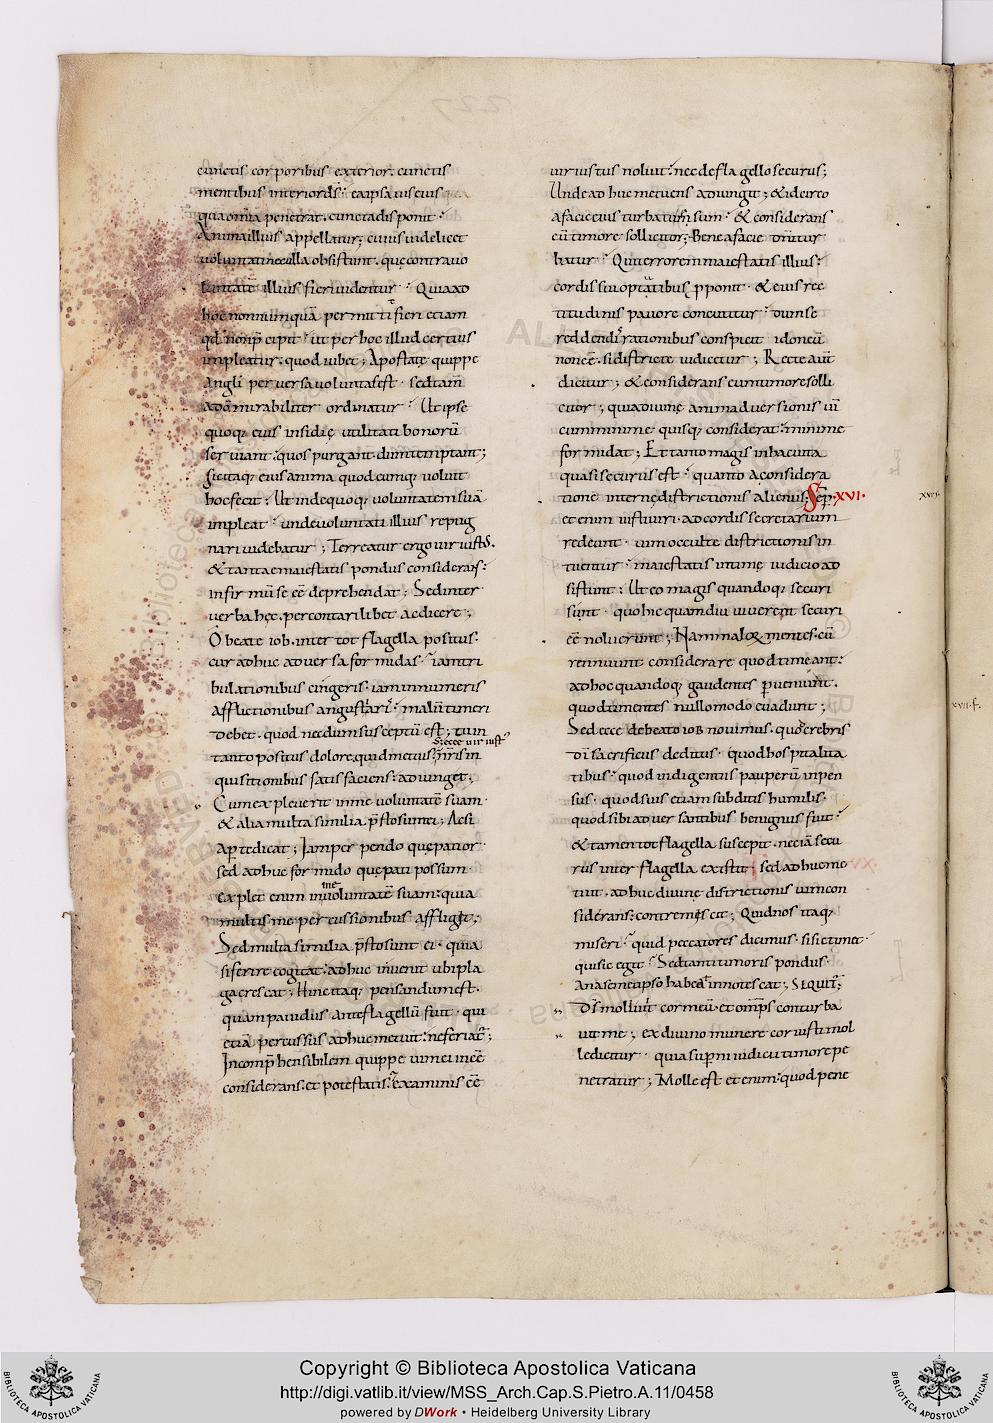 cunctis corporibus exterior. cunctis
mentibus interior ds; ea ipsa uis eius
qua omnia penetrat. cuncta disponit;
Anima illius appellatur; cuius uidelicet
uoluntati nec illa obsistunt. quę contra uo
luntatē illius fieri uidentur; Quia ad
hoc nonnumquā permittit fieri etiam
qđ non p̄cipit; ut per hoc illud certius
impleatur. quod iubet; Apostatę quippe
Angli peruersa uoluntas est. sed tam̄
a dō mirabiliter ordinatur; Ut ipsę
quoq; eius insidię utilitati bonorū
seruiant. quos purgant dum temptant;
Sic itaq; eius anima quodcumq; uoluit
hoc fecit; Ut inde quoq; uoluntatem suā
impleat. unde uoluntati illius repug
nari uidebatur; Terreatur ergo uir iustus.
& tantae maiestatis pondus considerans.
infirmū se eē deprehendat; Sed inter
uerba hęc. percontari libet ac dicere;
O beate iob. inter tot flagella positus.
cur adhuc aduersa formidas; iam tri
bulationibus cingeris. iam innumeris
afflictionibus angustaris. malū timeri
debet. quod necdum susceptū est; tu in
Sᵽ ecce uir iust'
tanto positus dolore. quid metuis; nr̄is in
quisitionibus satis faciens. adiunget;
Cum expleuerit in me uoluntatē suam.
& alia multa similia p̄sto sunt ei; Ac si
aperte dicat; Iam perpendo quę patior.
sed adhuc formido quę pati possum.
me
explet enim in uoluntatē suam. quia
multis me percussionibus affligit;
Sed multa similia p̄sto sunt ei. quia
si ferire cogitat. adhuc inuenit ubi pla
ga crescat; Hinc itaq; pensandum est.
quam pauidus ante flagellū fuit. qui
etiā percussus adhuc metuit. ne feriat̄;
Incomp̄hensibilem quippe uim ei inēē
considerans. et potestatis examinis eē
uir iustus noluit. nec de flagello securus;
Unde adhuc metuens adiungit; & idcirco
a facie eius turbatus sum. & considerans
eū timore sollicitor; Bene a facie dn̄i tur
batur. Qui terrorem maiestatis illius.
cordis sui optatibus p̄ponit. & eius rec
titudinis pauore concutitur. dum se
reddendis rationibus conspicit idoneū
non eē. si districte iudicetur; Recte aūt
dicitur; & considerans eum timore solli
citor; quia diuinę animaduersionis uī
cum minime quisq; considerat. minime
formidat; Et tanto magis in hac uita
quasi securus est. quanto a considera
tione internę districtionis alienus; Sep̄. XVI.
XVI
etenim uisti uiri. ad cordis secretarium
redeunt. uim occultę districtionis in
tuentur. maiestatis intimę iudicio ad
sistunt; Ut eo magis quandoq; securi
sunt. quo hic quamdiu uiuerent securi
eē noluerunt; Nam maloꝝ mentes. cū
rennuunt considerare quod timeant.
ad hoc quandoq; gaudentes pueniunt.
quod timentes nullo modo euadunt;
XVII. f.
Sed ecce de beato iob nouimus. quod crebris
di sacrificiis deditus. quod hospitalita
tibus. quod indigentis pauperū inpen
sus. quod suis etiam subditis humilis.
quod sibi aduersantibus benignus fuit.
& tamen tot flagella suscepit. nec iā secu
rus inter flagella existit; sed adhuc me
tuit. adhuc diuinę districtionis uim con
siderans. contremiscit; Quid nos itaq;
miseri. quid peccatores dicimus. si sic timet.
qui sic egit; Sed tanti timoris pondus.
an a semetipso habeat. innotescat; SEQUIT̄;
Ds molliuit cor meū. et omps conturba
uit me; ex diuino munere cor iusti mol
lescitur. quia supn̄i iudicii timore pe
netratur; Molle est etenim. quod pene
Copyright © Biblioteca Apostolica Vaticana
http://digi.vatlib.it/view/MSS_Arch.Cap.S.Pietro.A.11/0458
powered by DWork • Heidelberg University Library
BIBLIOTECA APOSTOLICA VATICANA
BIBLIOTECA APOSTOLICA VATICANA